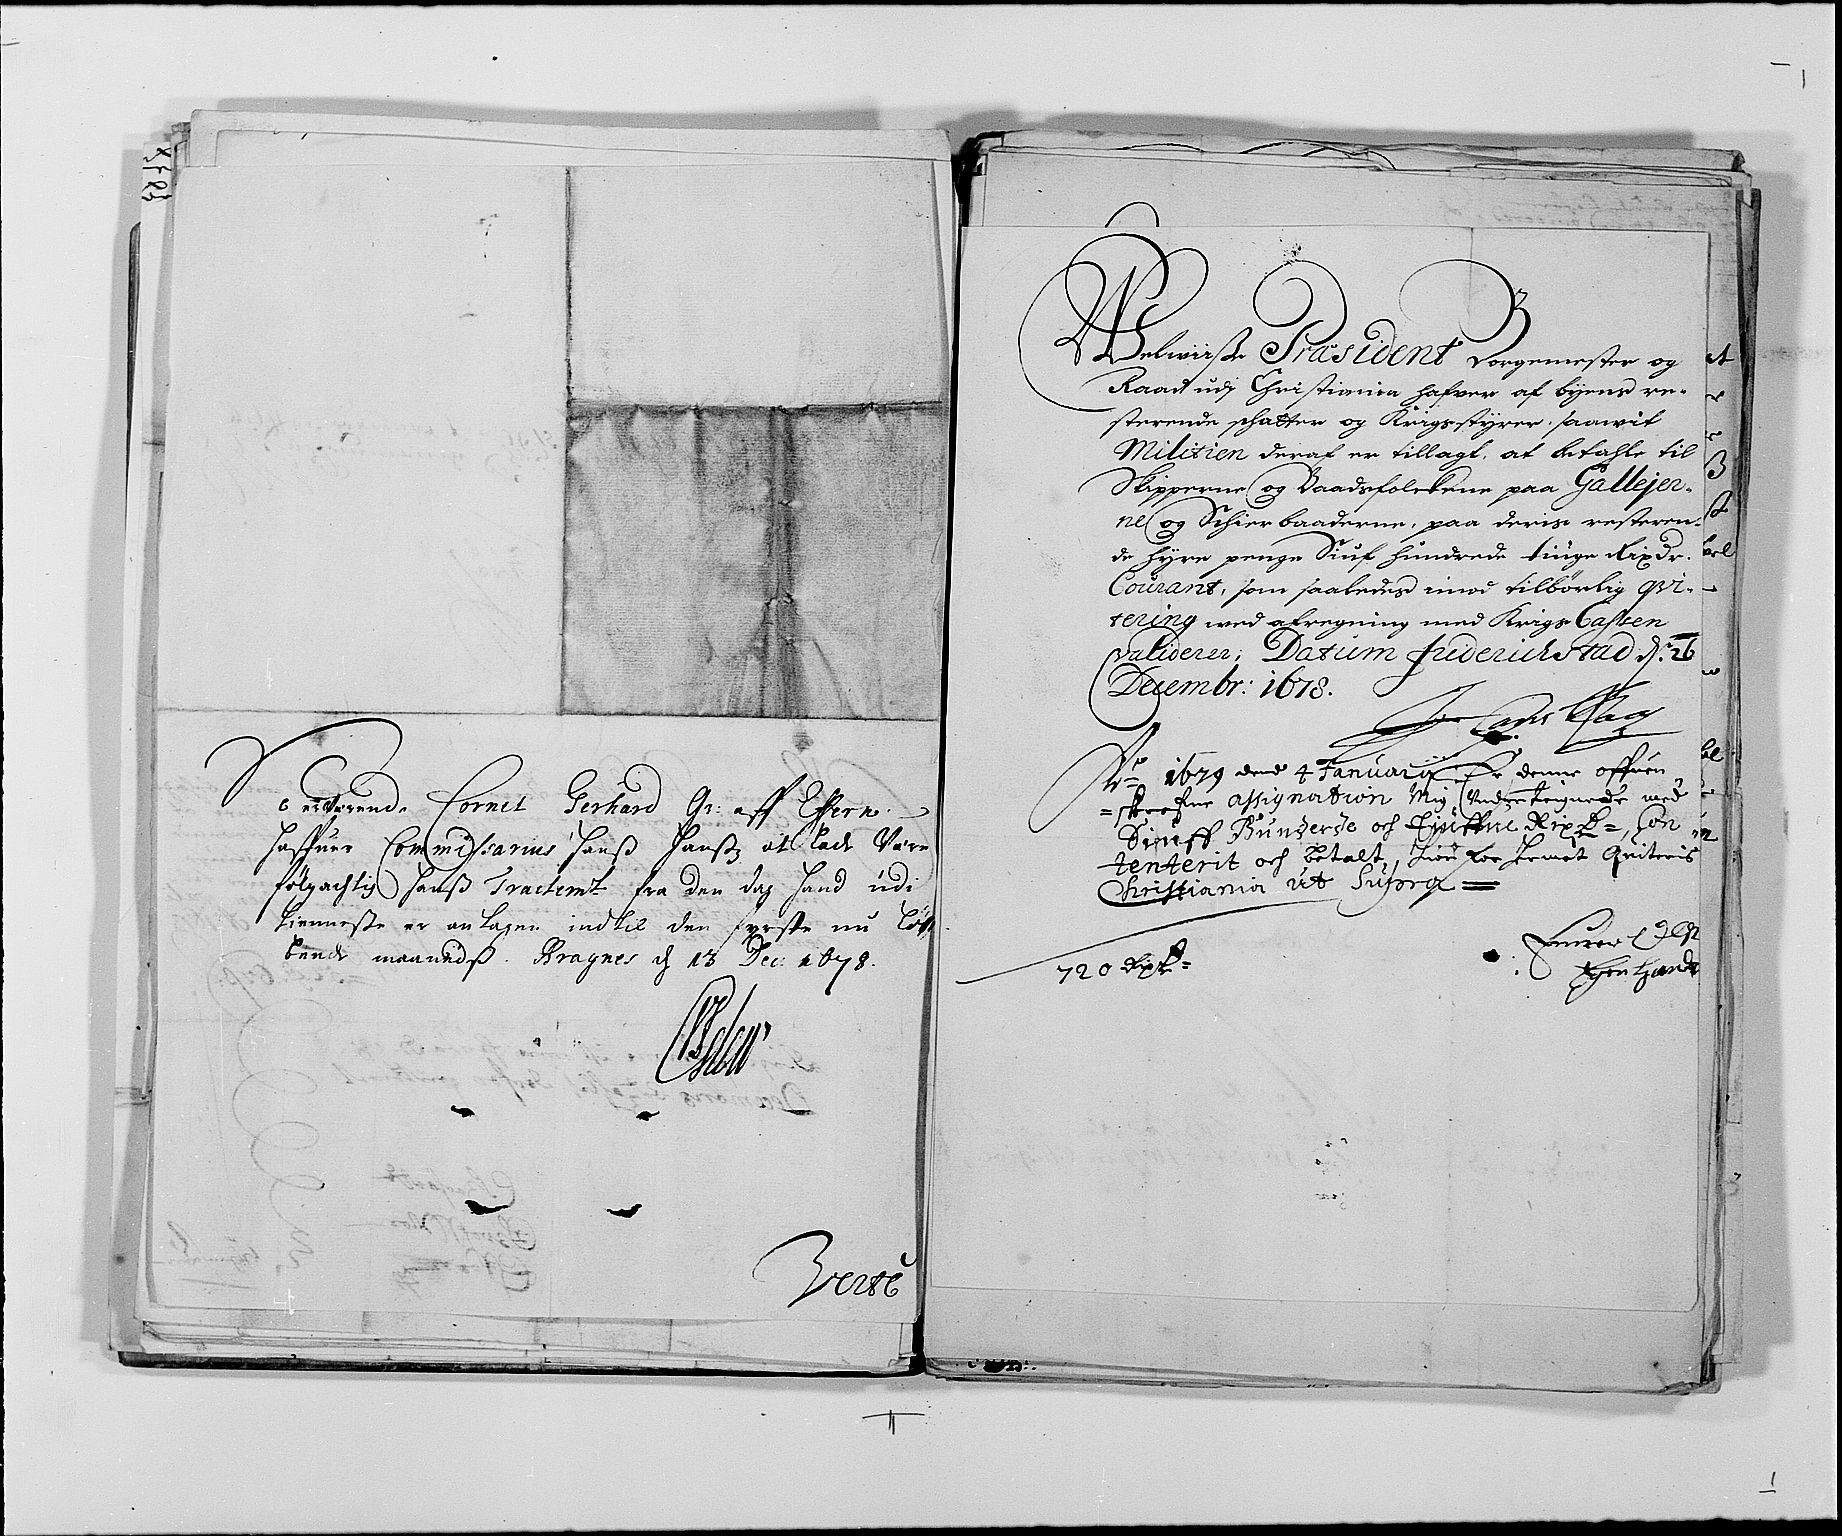 Nerværende Cornet Gerhard Gr: aff Effern
haffuer Commissarius Hanß Hanß: at lade Være
følgachtig hanß Tractemt fra den dag hand udi
tienneste er antagen indtil den første nu løb
bende maanedß. Bragnes d 13 Dec: 1678.
Verte
Welwiise Præsident Borgemester og
Raad udj Christiania hafver af byens re-
sterende schatter og Krigsstyrer, saawit
Militien deraf er tillagt, at betahle til
Skipperne og Baadsfolckene paa Gallejer-
ne og Schierbaaderne, paa deris resteren-
de hyre penge Siuf hundrede tiuge Rixdr.
Courant, som saaledes imod tilbörlig qvi-
tering wed afregning med Krigs Cassen
validerer; Datum Friderichstad d: 26
Decembr: 1678.
Ao 1679 dend 4 Januarij Er denne offuen
=skrefne assignation Mig Vnderteignede med
Siuff Hunderde och Tiuffue Rixd=, Con
tenterit och betalt, huor for hermet Quiteris
Christiania ut Supra =
720 Rixd=